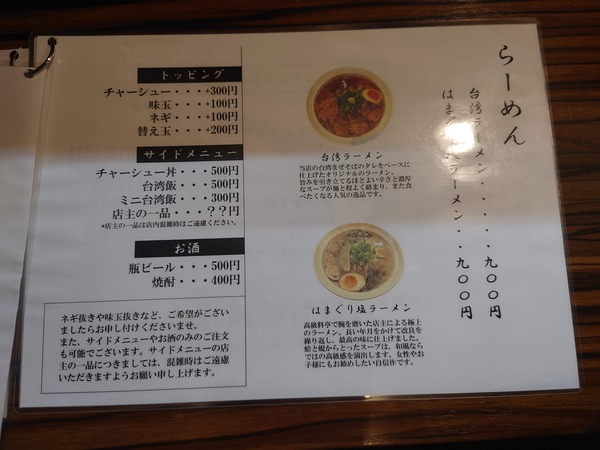 らーめん
台湾ラーメン・・・・・・九〇〇円
はまぐり塩ラーメン・・・九〇〇円
台湾ラーメン
当店の台湾まぜそばのタレをベースに
仕上げたオリジナルのラーメン。
旨みを引き立てるほどよい辛さと濃厚
なスープが麺と程よく絡まり、また食
べたくなる人気の逸品です。
はまぐり塩ラーメン
高級料亭で腕を磨いた店主による極上
のラーメン。長い年月をかけて改良を
繰り返し、最高の味に仕上げました。
蛤と蜆からとったスープは、和風なら
ではの高級感を演出します。女性やお
子様にもお勧めしたい自信作です。
トッピング
チャーシュー・・・+300円
味玉・・・+100円
ネギ・・・+100円
替え玉・・・+200円
サイドメニュー
チャーシュー丼・・・500円
台湾飯・・・500円
ミニ台湾飯・・・300円
店主の一品・・・??円
*店主の一品は店内混雑時はご遠慮ください。
お酒
瓶ビール・・・500円
焼酎・・・400円
ネギ抜きや味玉抜きなど、ご希望がござい
ましたらお申し付けくださいませ。
また、サイドメニューやお酒のみのご注文
も可能でございます。サイドメニューの店
主の一品につきましては、混雑時はご遠慮
いただきますようお願い申し上げます。